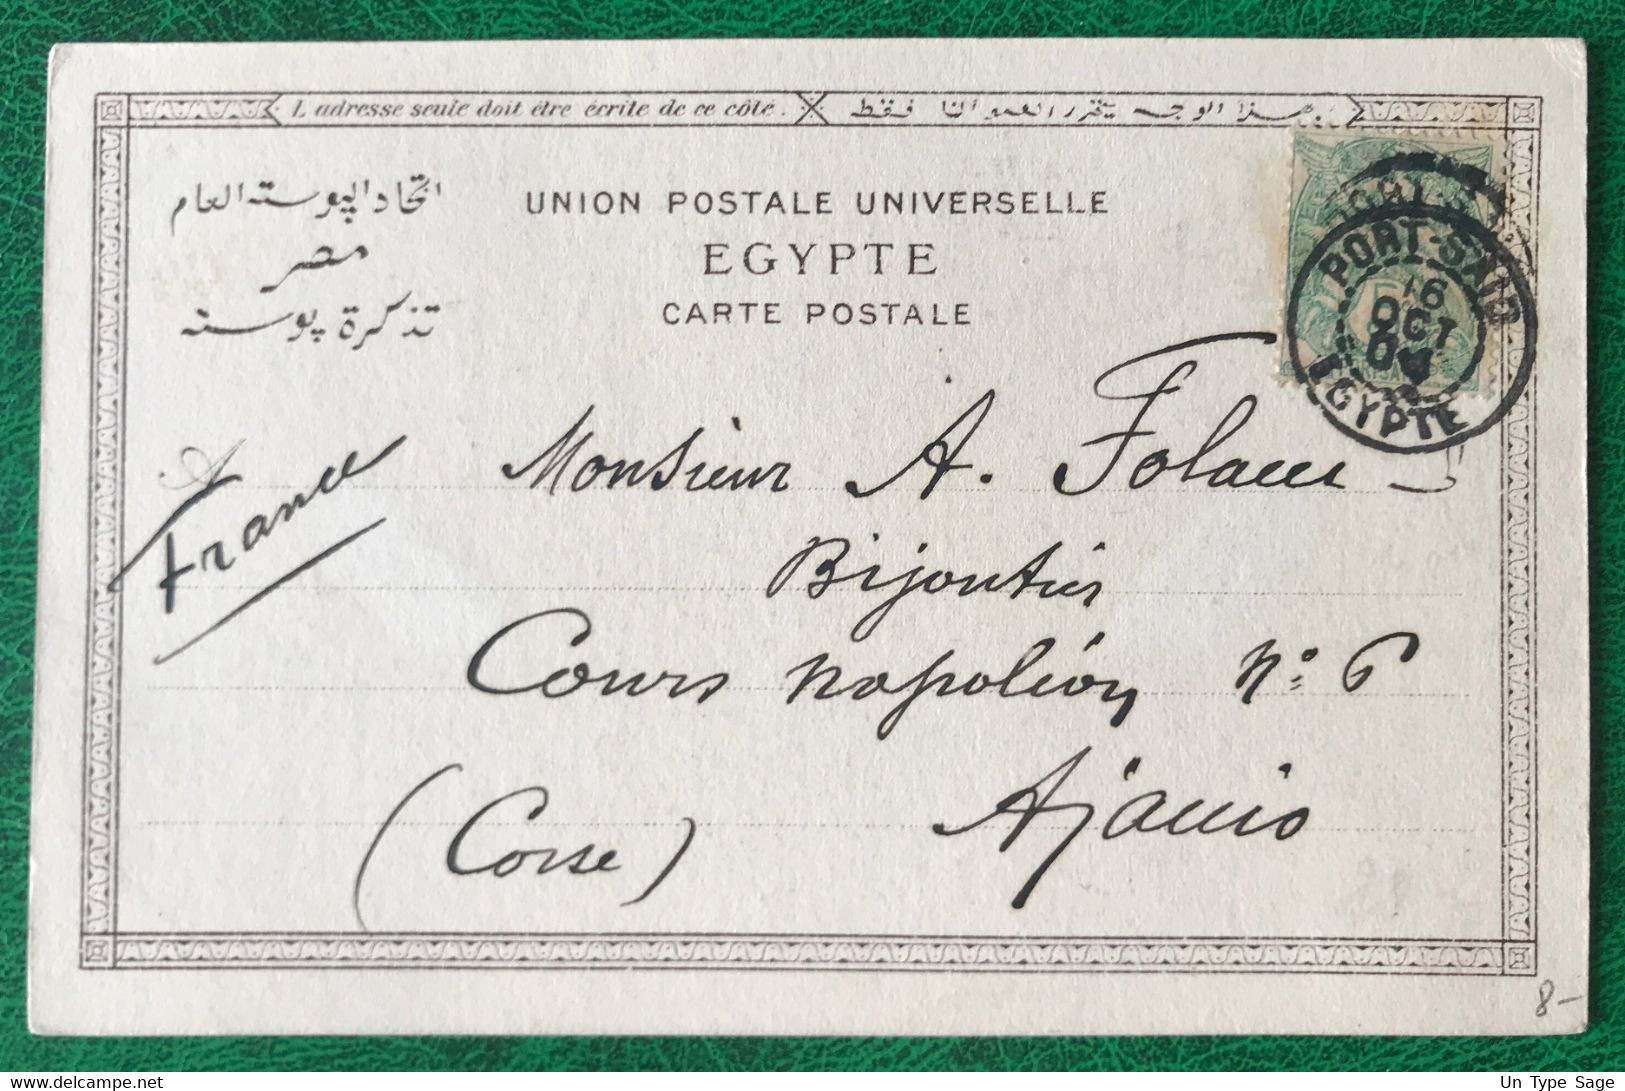 L'adresse seule doit être écrite de ce côté.
اتحاد البوسته العام
مصر
تذكرة بوسته
UNION POSTALE UNIVERSELLE
EGYPTE
CARTE POSTALE
PORT-SAID
16
OCT
EGYPTE
France
Monsieur A. Folacci
Bijoutier
Cours Napoléon N° 6
Ajaccio
(Corse)
8-
Un Type Sage